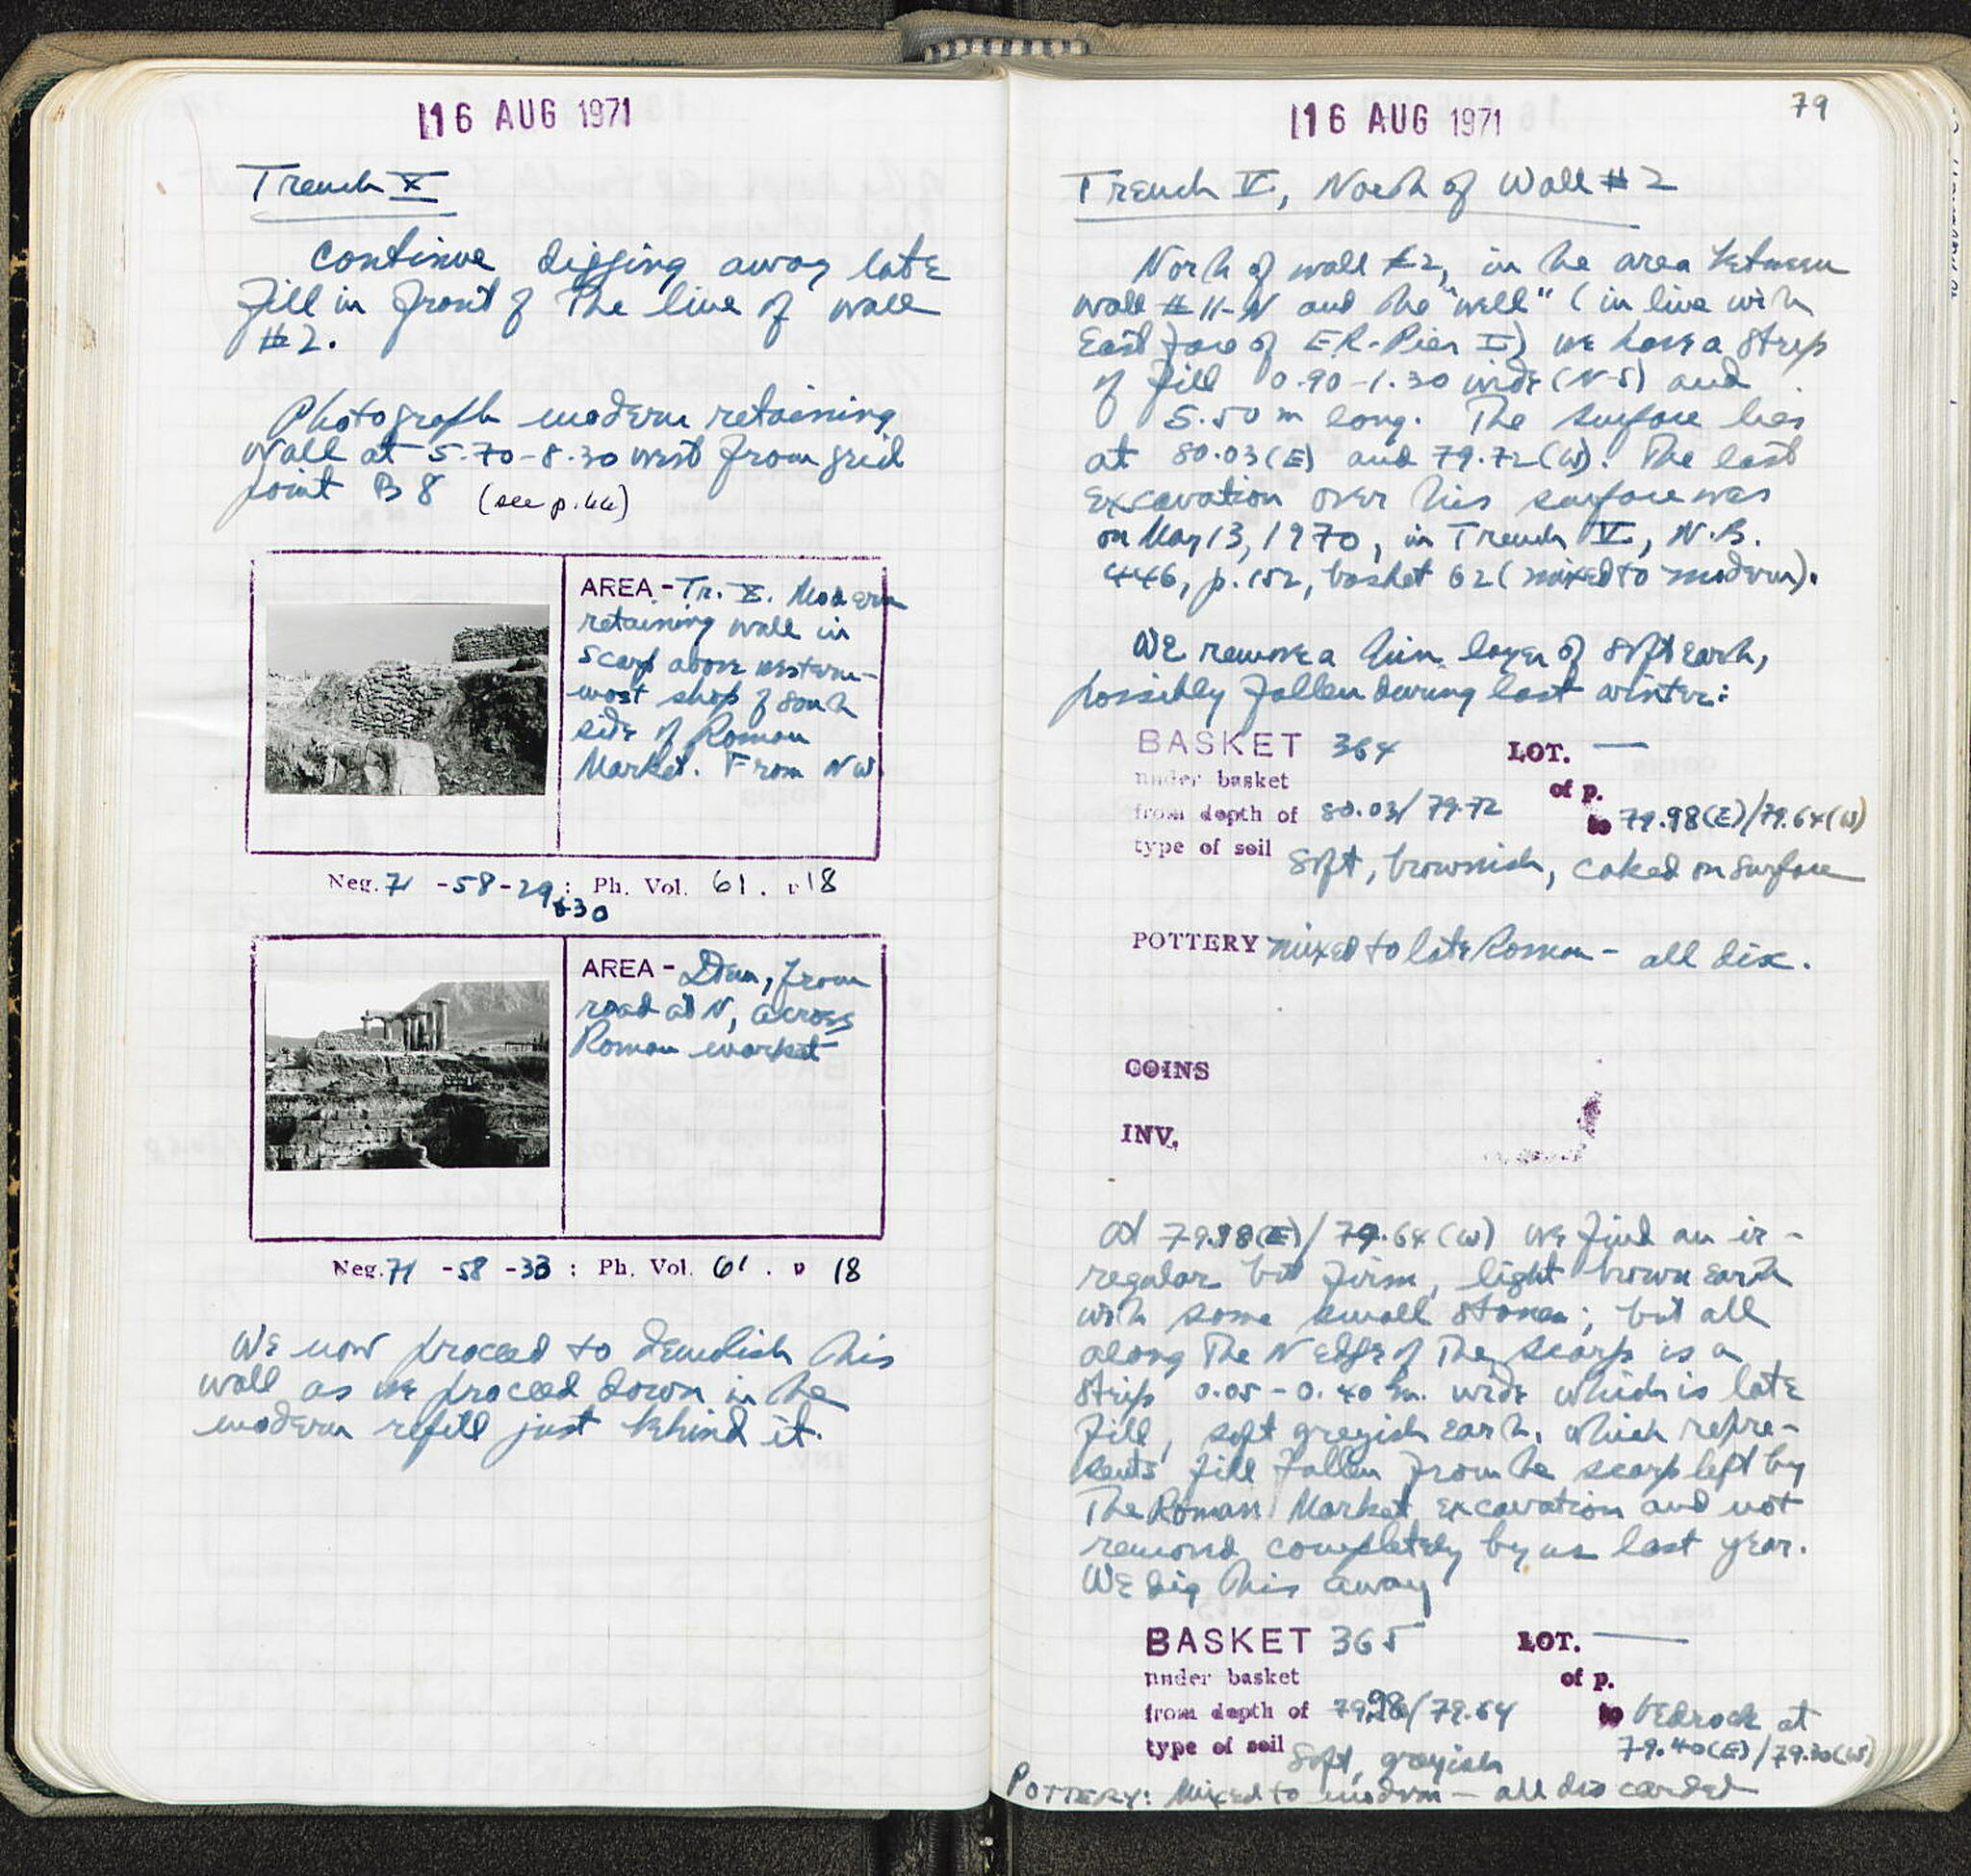 16 AUG 1971
Trench X
Continue digging away late
fill in front of the line of wall
#2.
Photograph modern retaining
wall at 5.70-8.30 west from grid
point B 8 (see p. 66)
AREA - Tr. X. Modern
retaining wall in
scarp above western-
most shop of south
side of Roman
Market. From NW.
Neg. 71 -58-29 : Ph. Vol. 61. p 18
+30
AREA - Idem, from
road at N, across
Roman market
Neg. 71 -58 -33 : Ph. Vol. 61. p 18
We now proceed to demolish this
wall as we proceed down in the
modern refill just behind it.
16 AUG 1971
79
Trench V, North of Wall #2
North of wall #2, in the area between
wall #11-N and the "well" (in line with
East face of E.R. Pier I) we have a strip
of fill 0.90-1.30 wide (N-S) and
5.50 m long. The surface lies
at 80.03(E) and 79.72(W). The last
excavation over this surface was
on May 13, 1970, in Trench V, N.B.
446, p. 152, basket 62 (mixed to modern).
We remove a thin layer of soft earth,
possibly fallen during last winter:
BASKET 364 LOT. —
under basket of p.
from depth of 80.03/79.72 to 79.98(E)/79.64(W)
type of soil Soft, brownish, caked on surface
POTTERY mixed to late Roman - all disc.
COINS
INV.
At 79.98(E)/79.64(W) we find an ir-
regular but firm, light brown earth
with some small stones; but all
along the N edge of the scarp is a
strip 0.05-0.40 m. wide which is late
fill, soft greyish earth, which repre-
sents fill fallen from the scarp left by
the Roman Market excavation and not
removed completely by us last year.
We dig this away
BASKET 365 LOT. —
under basket of p.
from depth of 79.98/79.64 to bedrock at
79.40(E)/79.30(W)
type of soil Soft, greyish
POTTERY: Mixed to modern - all discarded